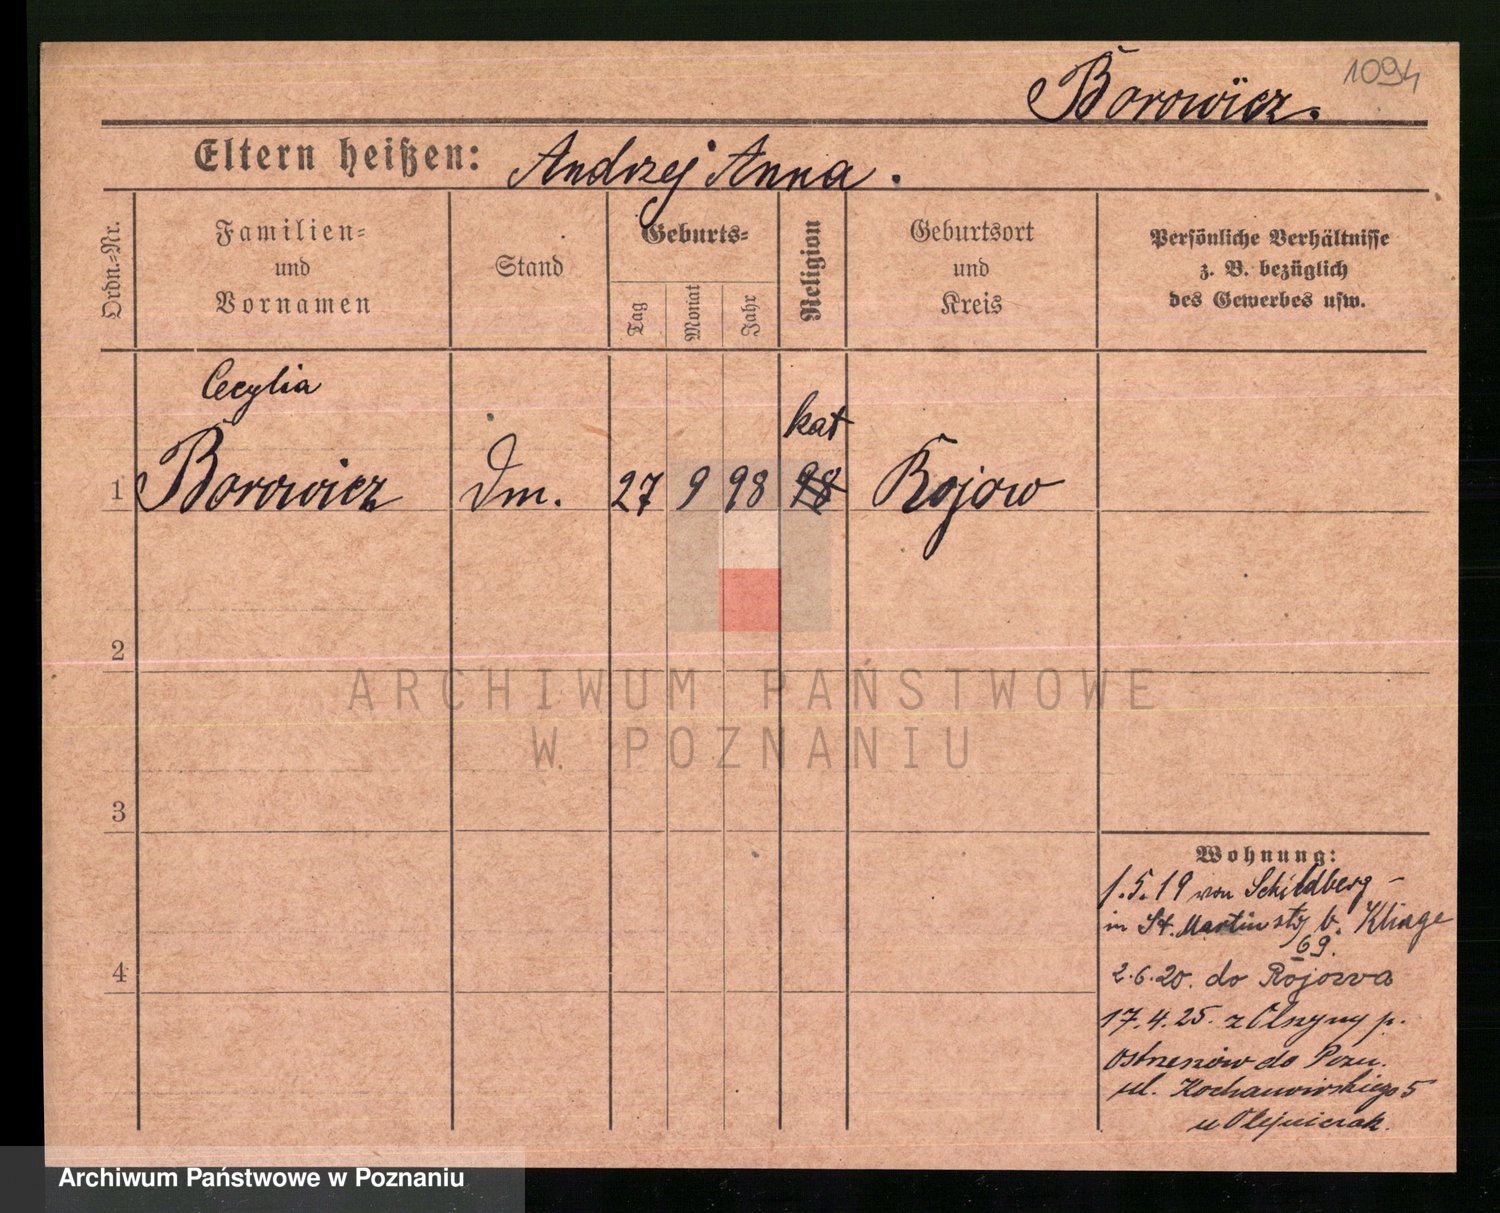 1094
Borowicz.
Eltern heißen: Andrzej Anna.
Ordn.-Nr.
Familien- und Vornamen
Stand
Geburts-
Tag
Monat
Jahr
Religion
Geburtsort und Kreis
Persönliche Verhältnisse
z. B. bezüglich
des Gewerbes usw.
Cecylia
kat
1 Borowicz Dm. 27 9 98 98 Rojow
2
ARCHIWUM PAŃSTWOWE
W POZNANIU
3
4
Wohnung:
1.5.19 von Schildberg –
in St. Martinstr b. Kliage
69.
2.6.20. do Rojowa
17.4.25. z Olszyny p.
Ostrzeszów do Pozn.
ul. Kochanowskiego 5
u Olejniczak.
Archiwum Państwowe w Poznaniu